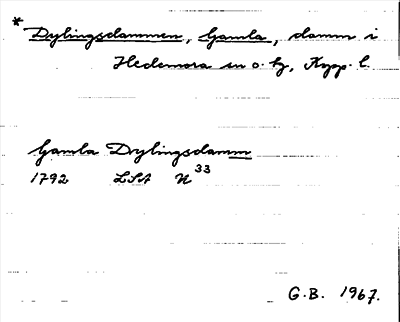 * Dylingsdammen, Gamla, damm i
Hedemora sn o. hg, Kopp. l.
Gamla Dylingsdamm
1792 LSA N 33
G.B. 1967.